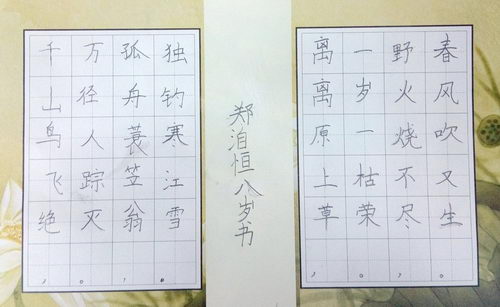 千山鸟飞绝，
万径人踪灭。
孤舟蓑笠翁，
独钓寒江雪。
郑泊恒八岁书
离离原上草，
一岁一枯荣。
野火烧不尽，
春风吹又生。